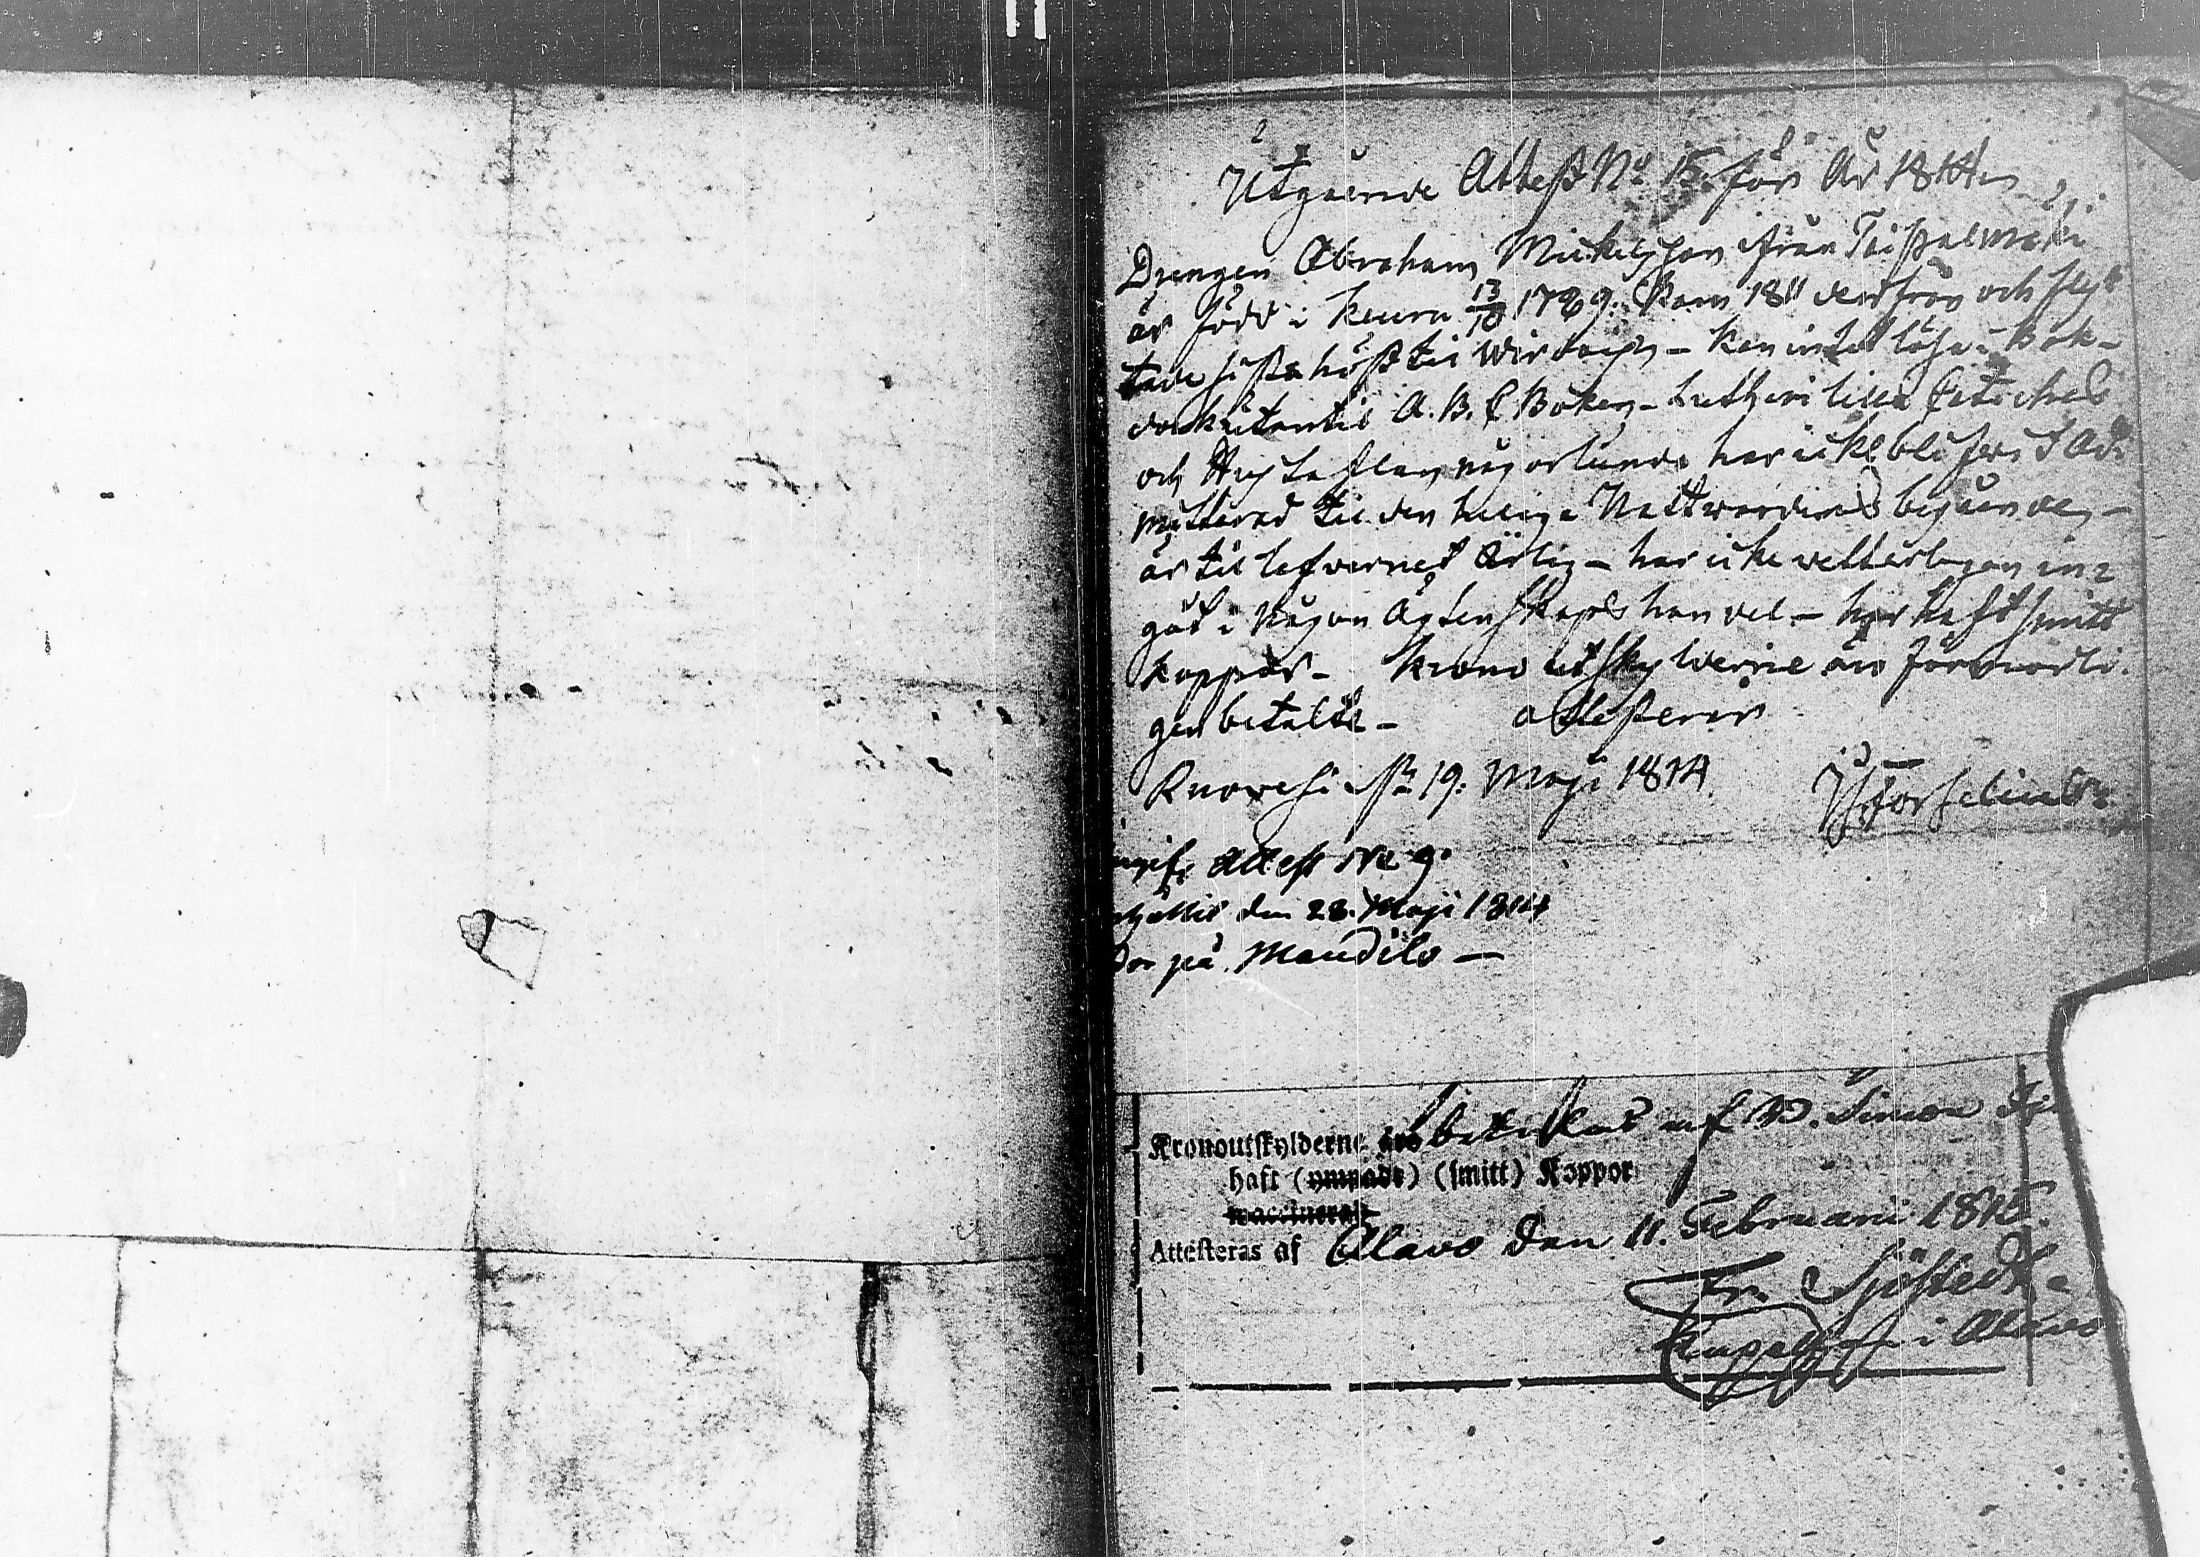 Utgående Attest No 15. för År 1814
Drengen Abraham Mickelsson ifrån Taipalmäki
är född i Keuru 13/10 1789. Kom 1811 derifrån och flyt-
tade sista höst til Wirdois - kan intet läsa i Bok -
utantil A.B.C Boken - Lutheri lilla Catches
och Hustaflan någorlunda har icke blifwit Ad-
mitterad til den heliga Nattwardens begående -
är til lefvernet Ärlig - har icke wetterligen in-
gåt i någon Ägtenskaps handel - har haft smitt
koppor - Krono utskylderne äro förswarli-
gen betalte - attesterar
Ruowesi den 19. Maji 1814
Attest No 9.
den 28. Maji 1814
på Mandilo -
Kronoutskylderne äro betalas af B. Simon
haft (ympade) (smitt) Koppor
vaccinerad
Attesteras af Alavo den 11. Februarii 1815.
Fr. Sjöstedt
Kapellan i Alavo